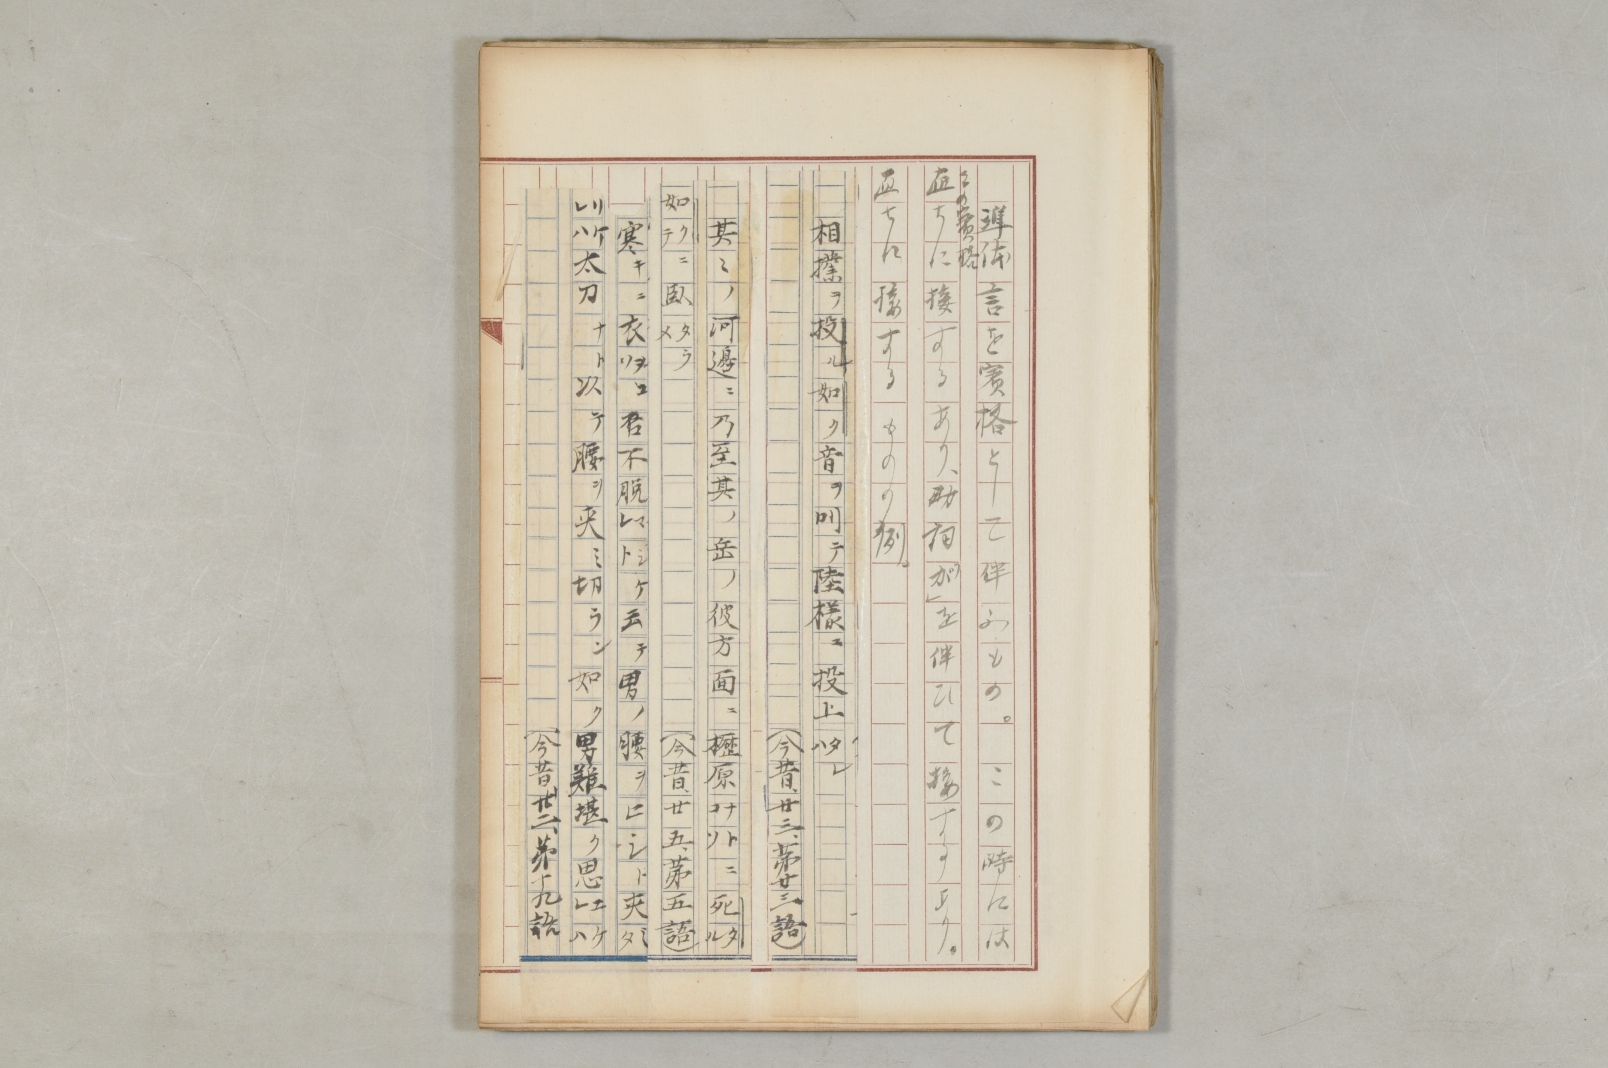 準体言を賓格として伴ふもの。この時には
この賓格
直ちに接するあり、助詞「が」を伴ひて接するあり。
直ちに接するものの例。
相撲ヲ投ル如ク音ヲ叫テ陸様ニ投上タレハ
(今昔、廿三、第廿三語)
其ミノ河邊ニ乃至其ノ岳ノ彼方面ニ櫪原ナトコソニ死タル
如クニテ臥タラメ
(今昔、廿五、第五語)
寒キニ衣ヲコソ君不脱シマトケ云テ男ノ腰ヲヒシト夾ミタ
リケレハ太刀ナト以テ腰ヲ夾ミ切ラン如ク男難堪ク思エケレハ
(今昔、廿二、第十九語